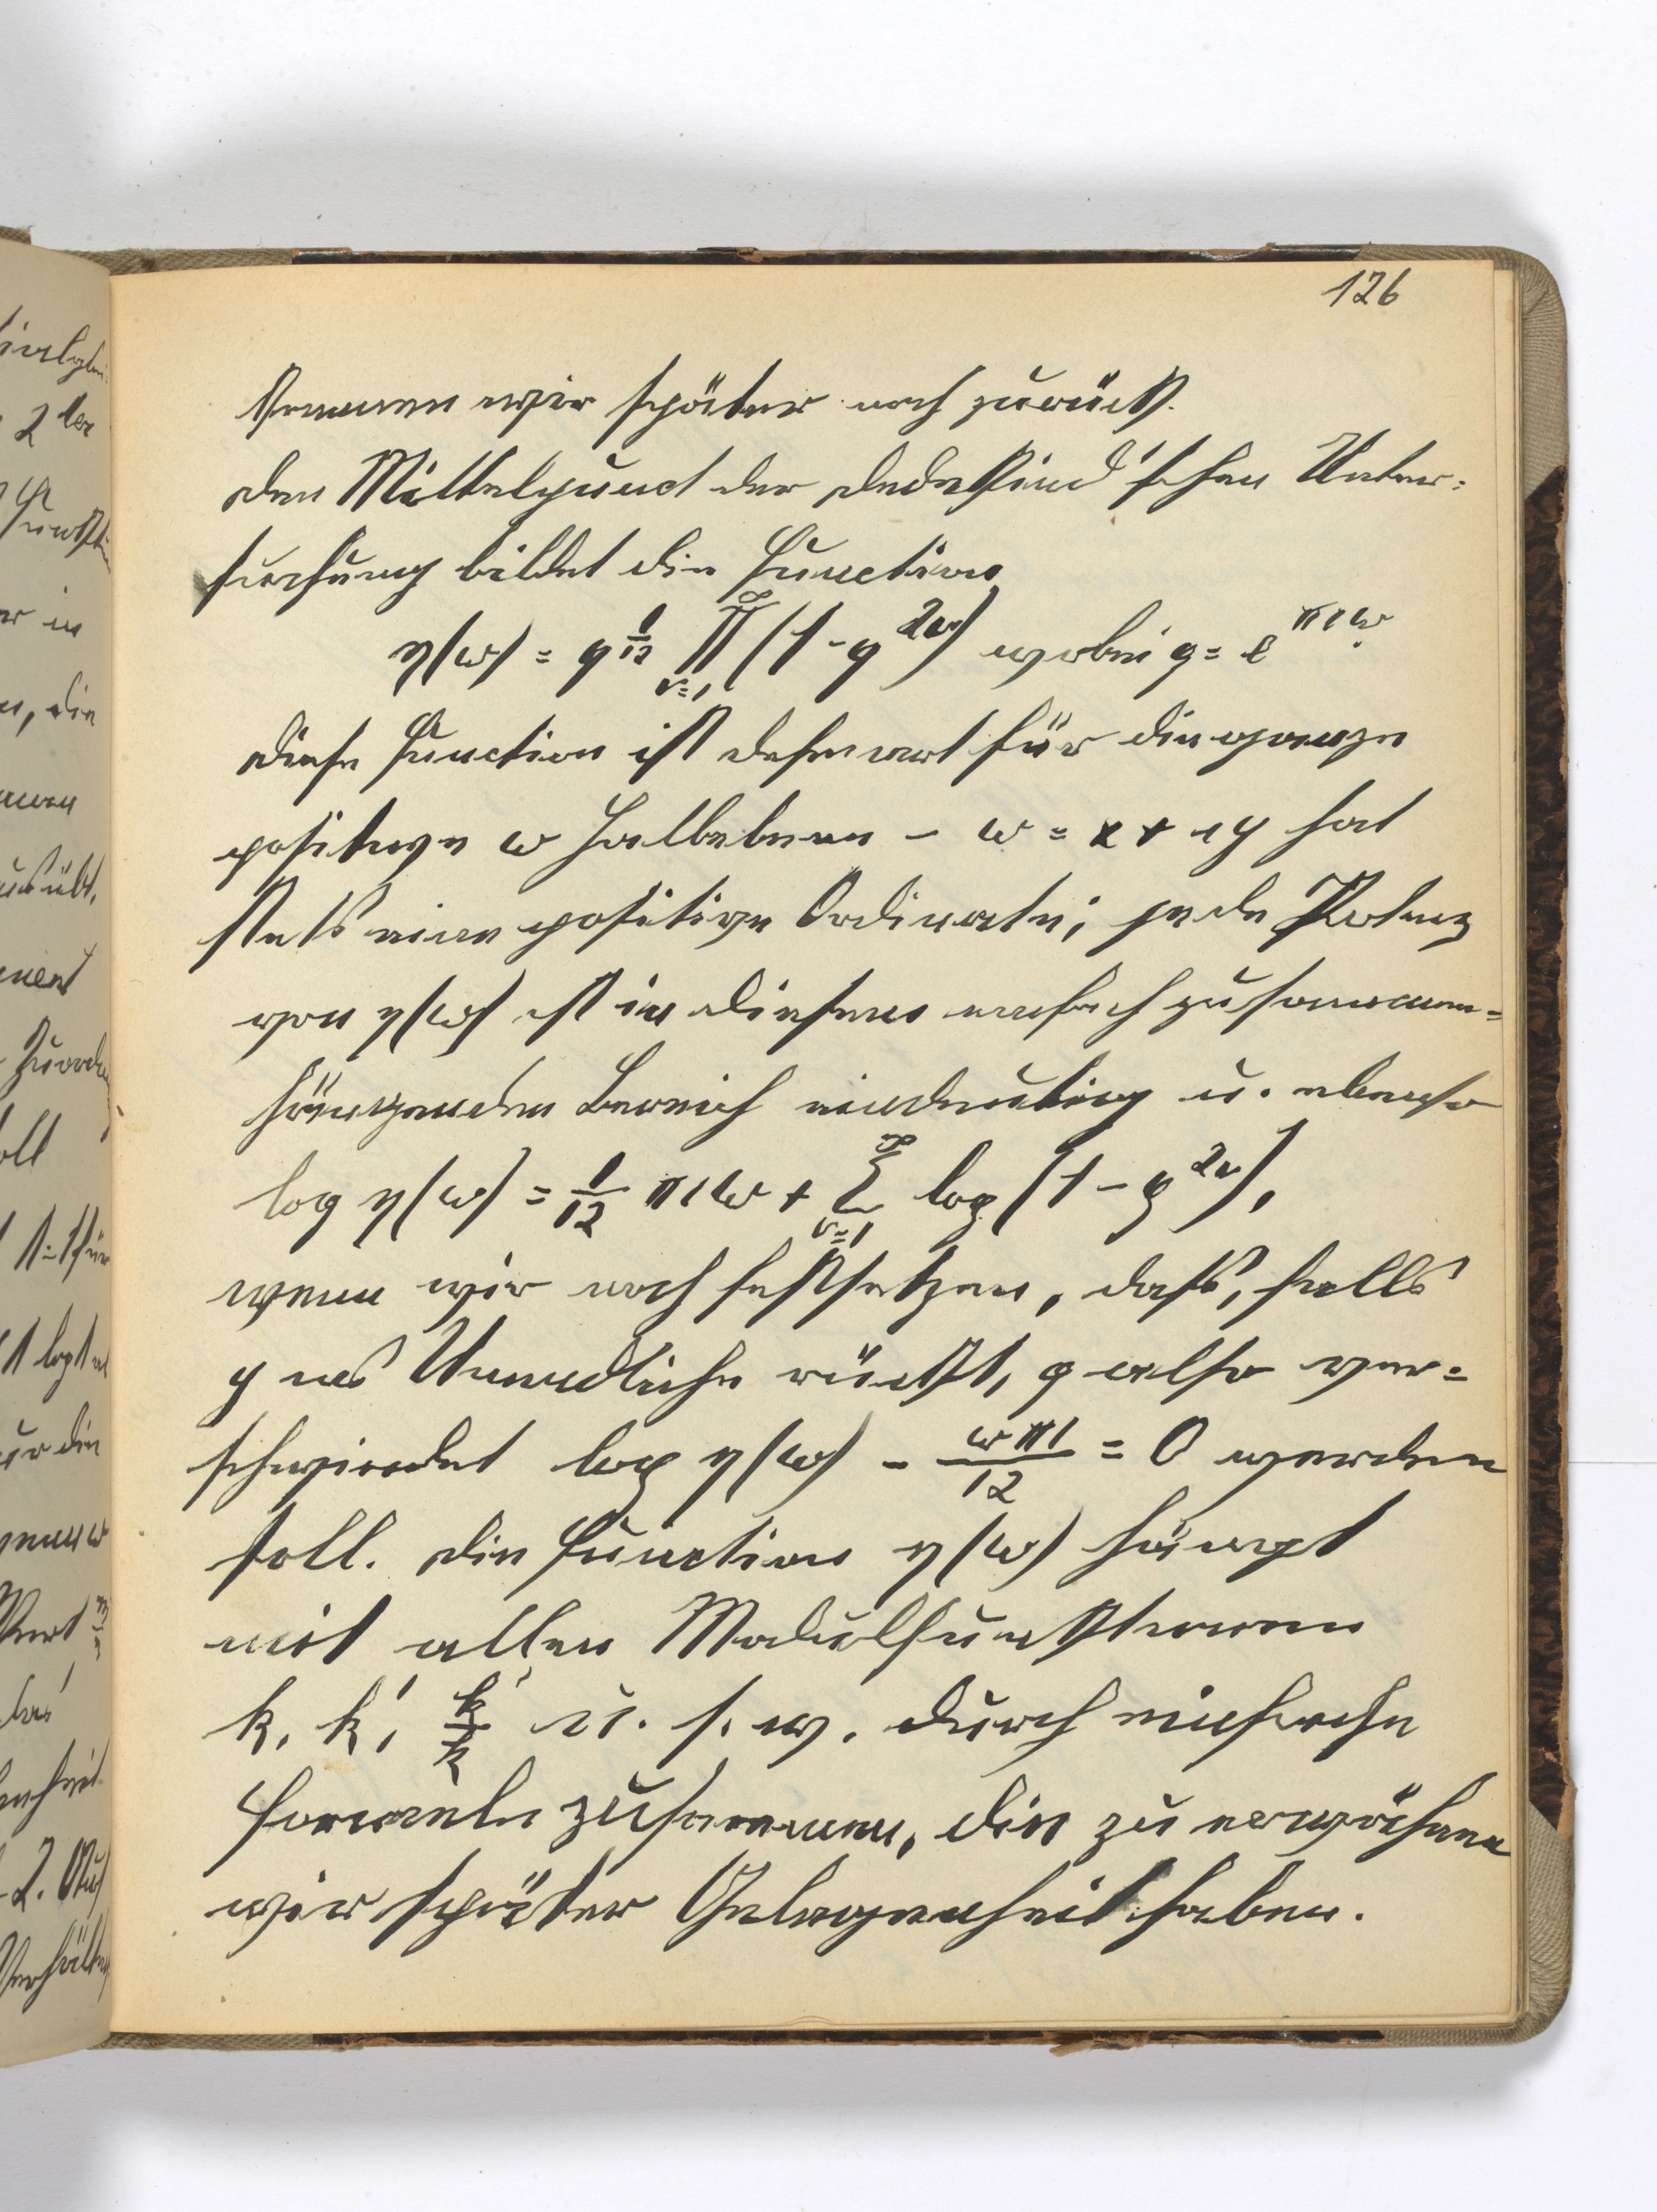 126
kommen wir später noch zurück.
Den Mittelpunct der Dedekind'schen Unter=
suchung bildet die Function
η(ω) = q^{1/12} ∏_{ν=1}^{∞} (1 - q^{2ν}) wobei q = e^{πiω}.
Diese Function ist definirt für die ganze
positive ω Halbebene - ω = x + iy hat
stets eine positive Ordinate; jede Potenz
von η(ω) ist in diesem einfach zusammen=
hängenden Bereich eindeutig u. ebenso
log η(ω) = 1/12 πiω + ∑_{ν=1}^{∞} log (1 - q^{2ν}),
wenn wir noch festsetzen, dass, falls
y ins Unendliche rückt, q also ver=
schwindet log η(ω) - ωπi/12 = 0 werden
soll. Die Function η(ω) hängt
mit allen Modulfunktionen
k, k', k'/k u. s. w. durch einfache
Formeln zusammen, die zu erwähnen
wir später Gelegenheit haben.